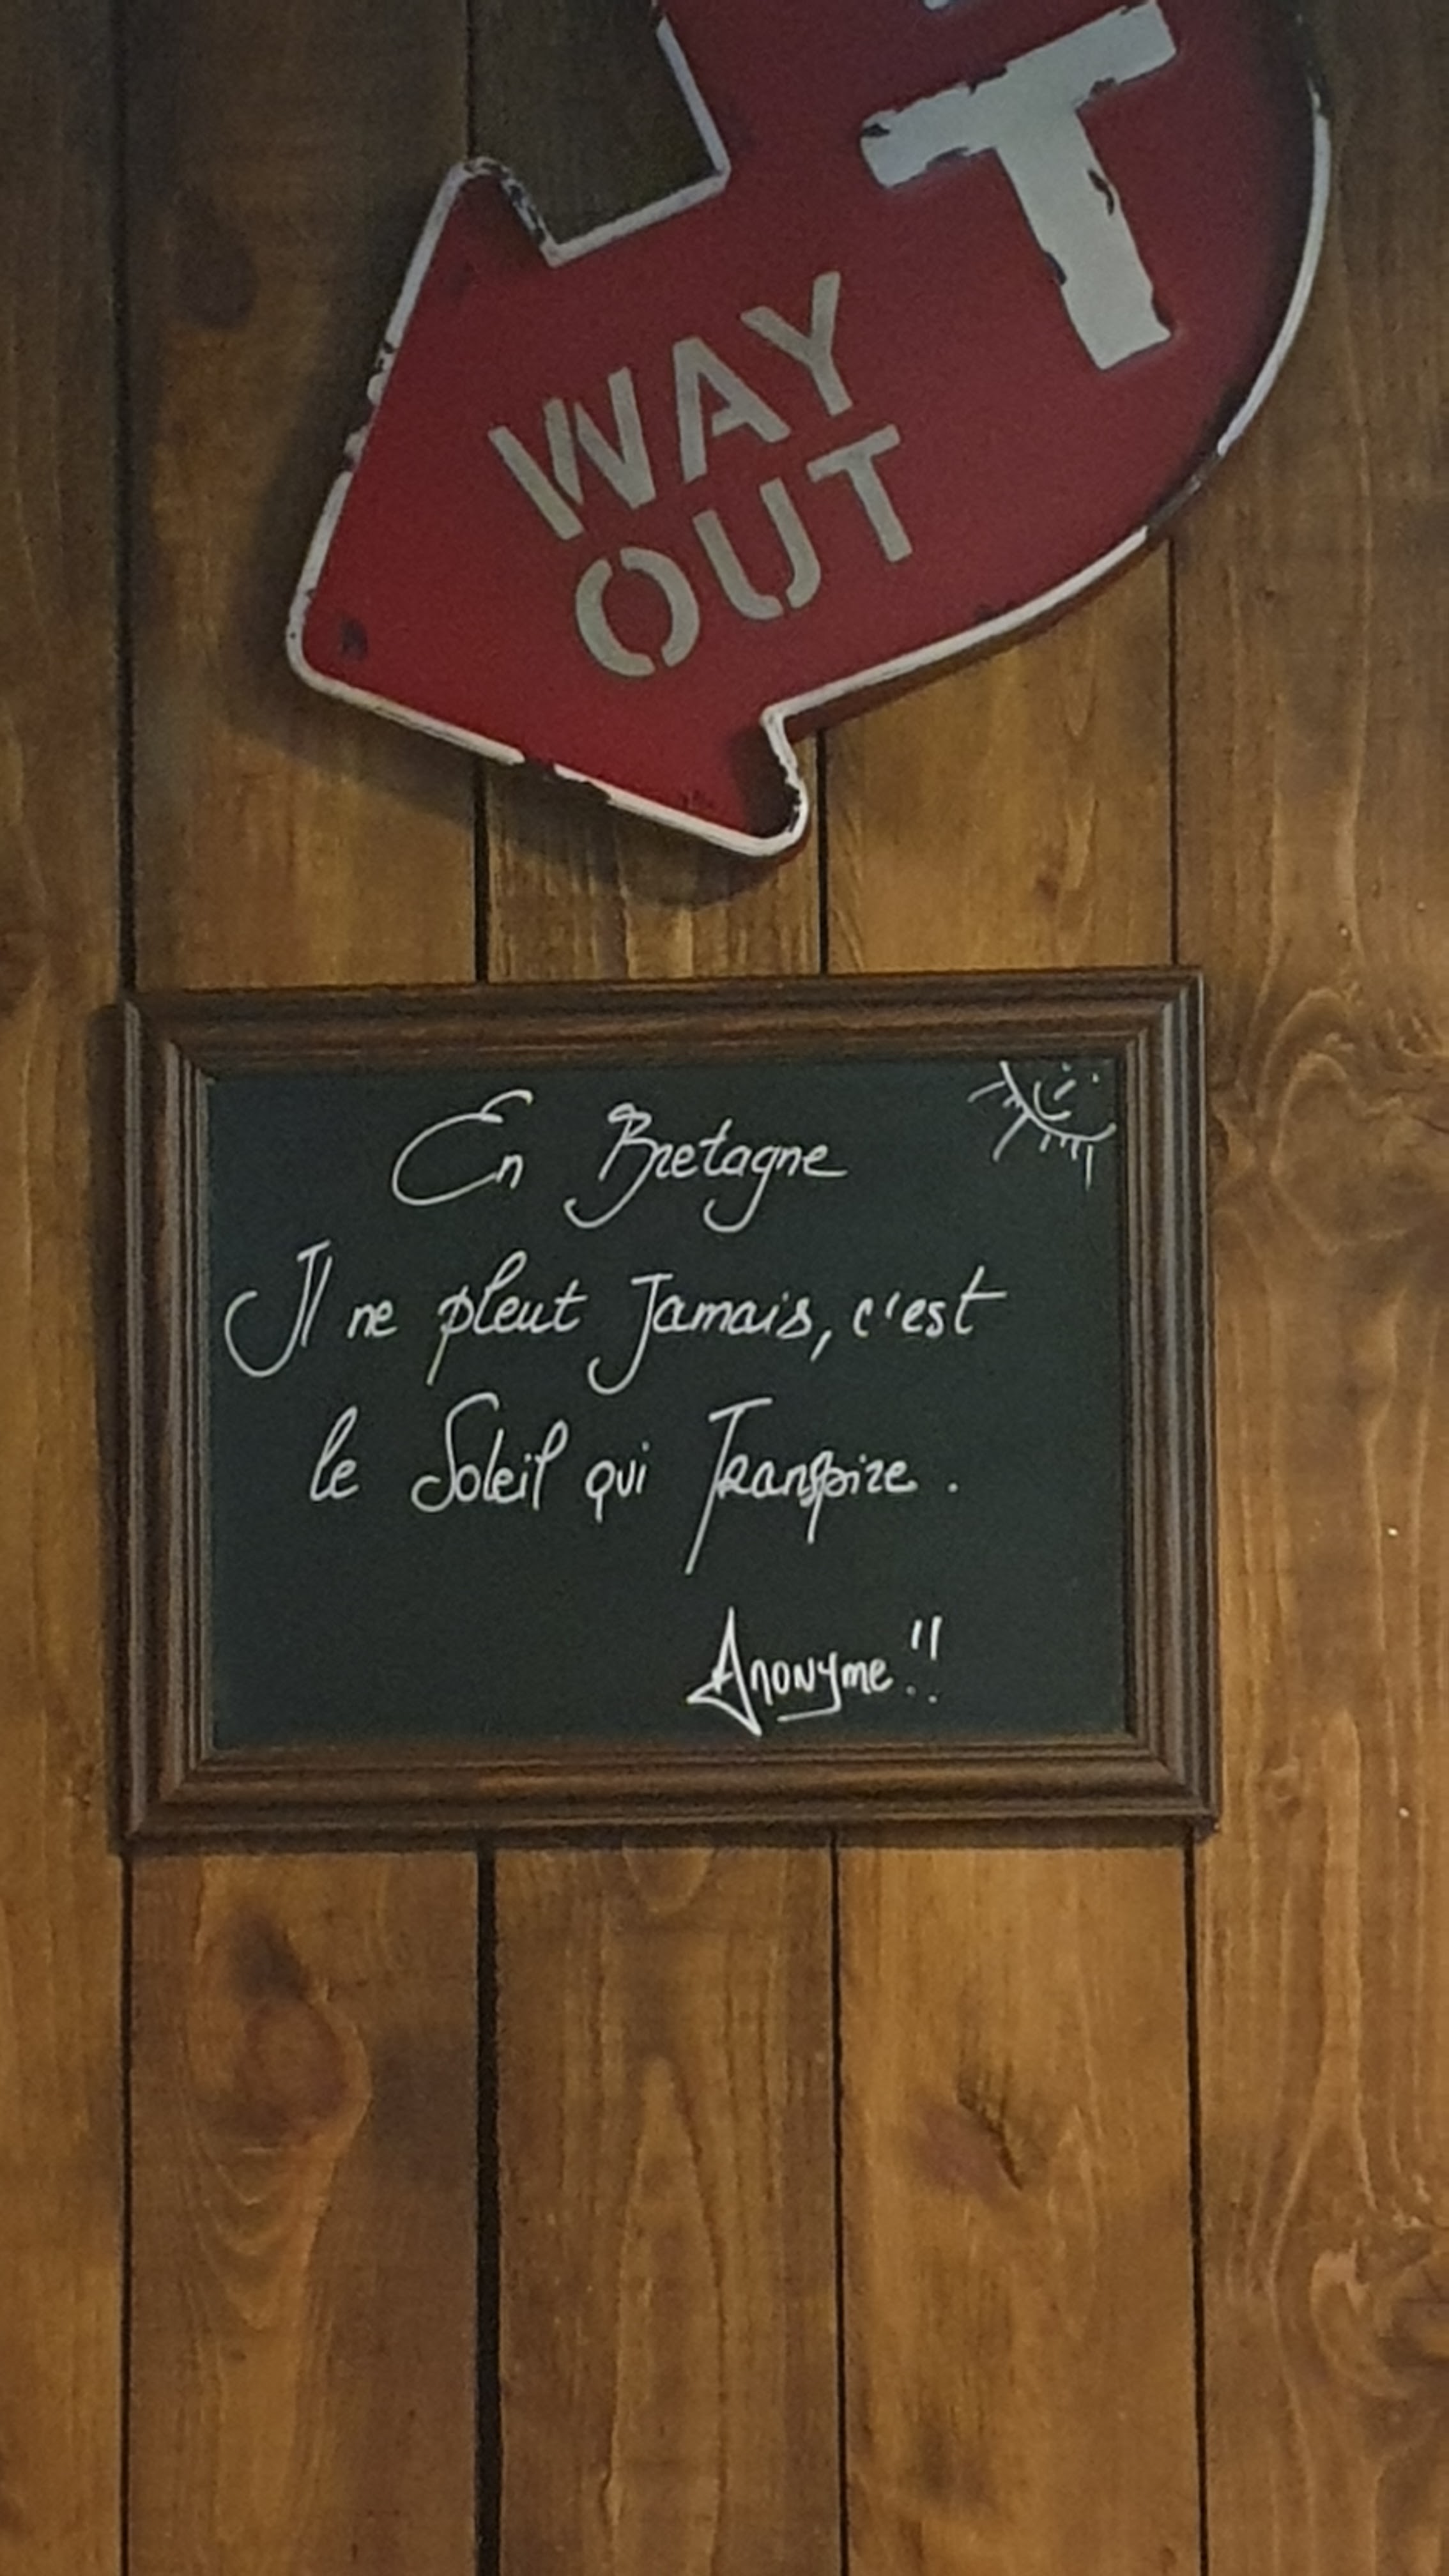 T
WAY
OUT
En Bretagne
Il ne pleut Jamais, c'est
le Soleil qui Transpire.
Anonyme!!